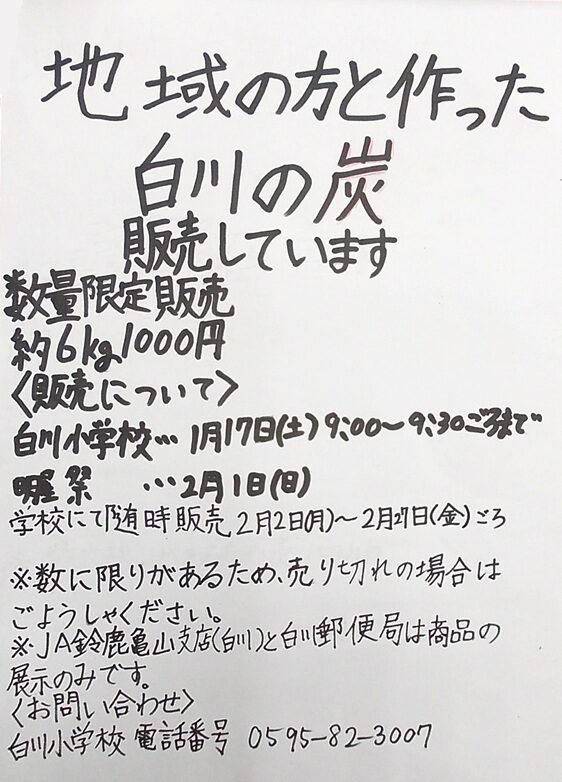 地域の方と作った
白川の炭
販売しています
数量限定販売
約6kg1000円
〈販売について〉
白川小学校… 1月17日(土)9:00〜9:30ごろまで
明星祭 …2月1日(日)
学校にて随時販売 2月2日(月)〜2月27日(金)ごろ
※数に限りがあるため、売り切れの場合は
ごようしゃください。
※JA鈴鹿亀山支店(白川)と白川郵便局は商品の
展示のみです。
〈お問い合わせ〉
白川小学校 電話番号 0595-82-3007